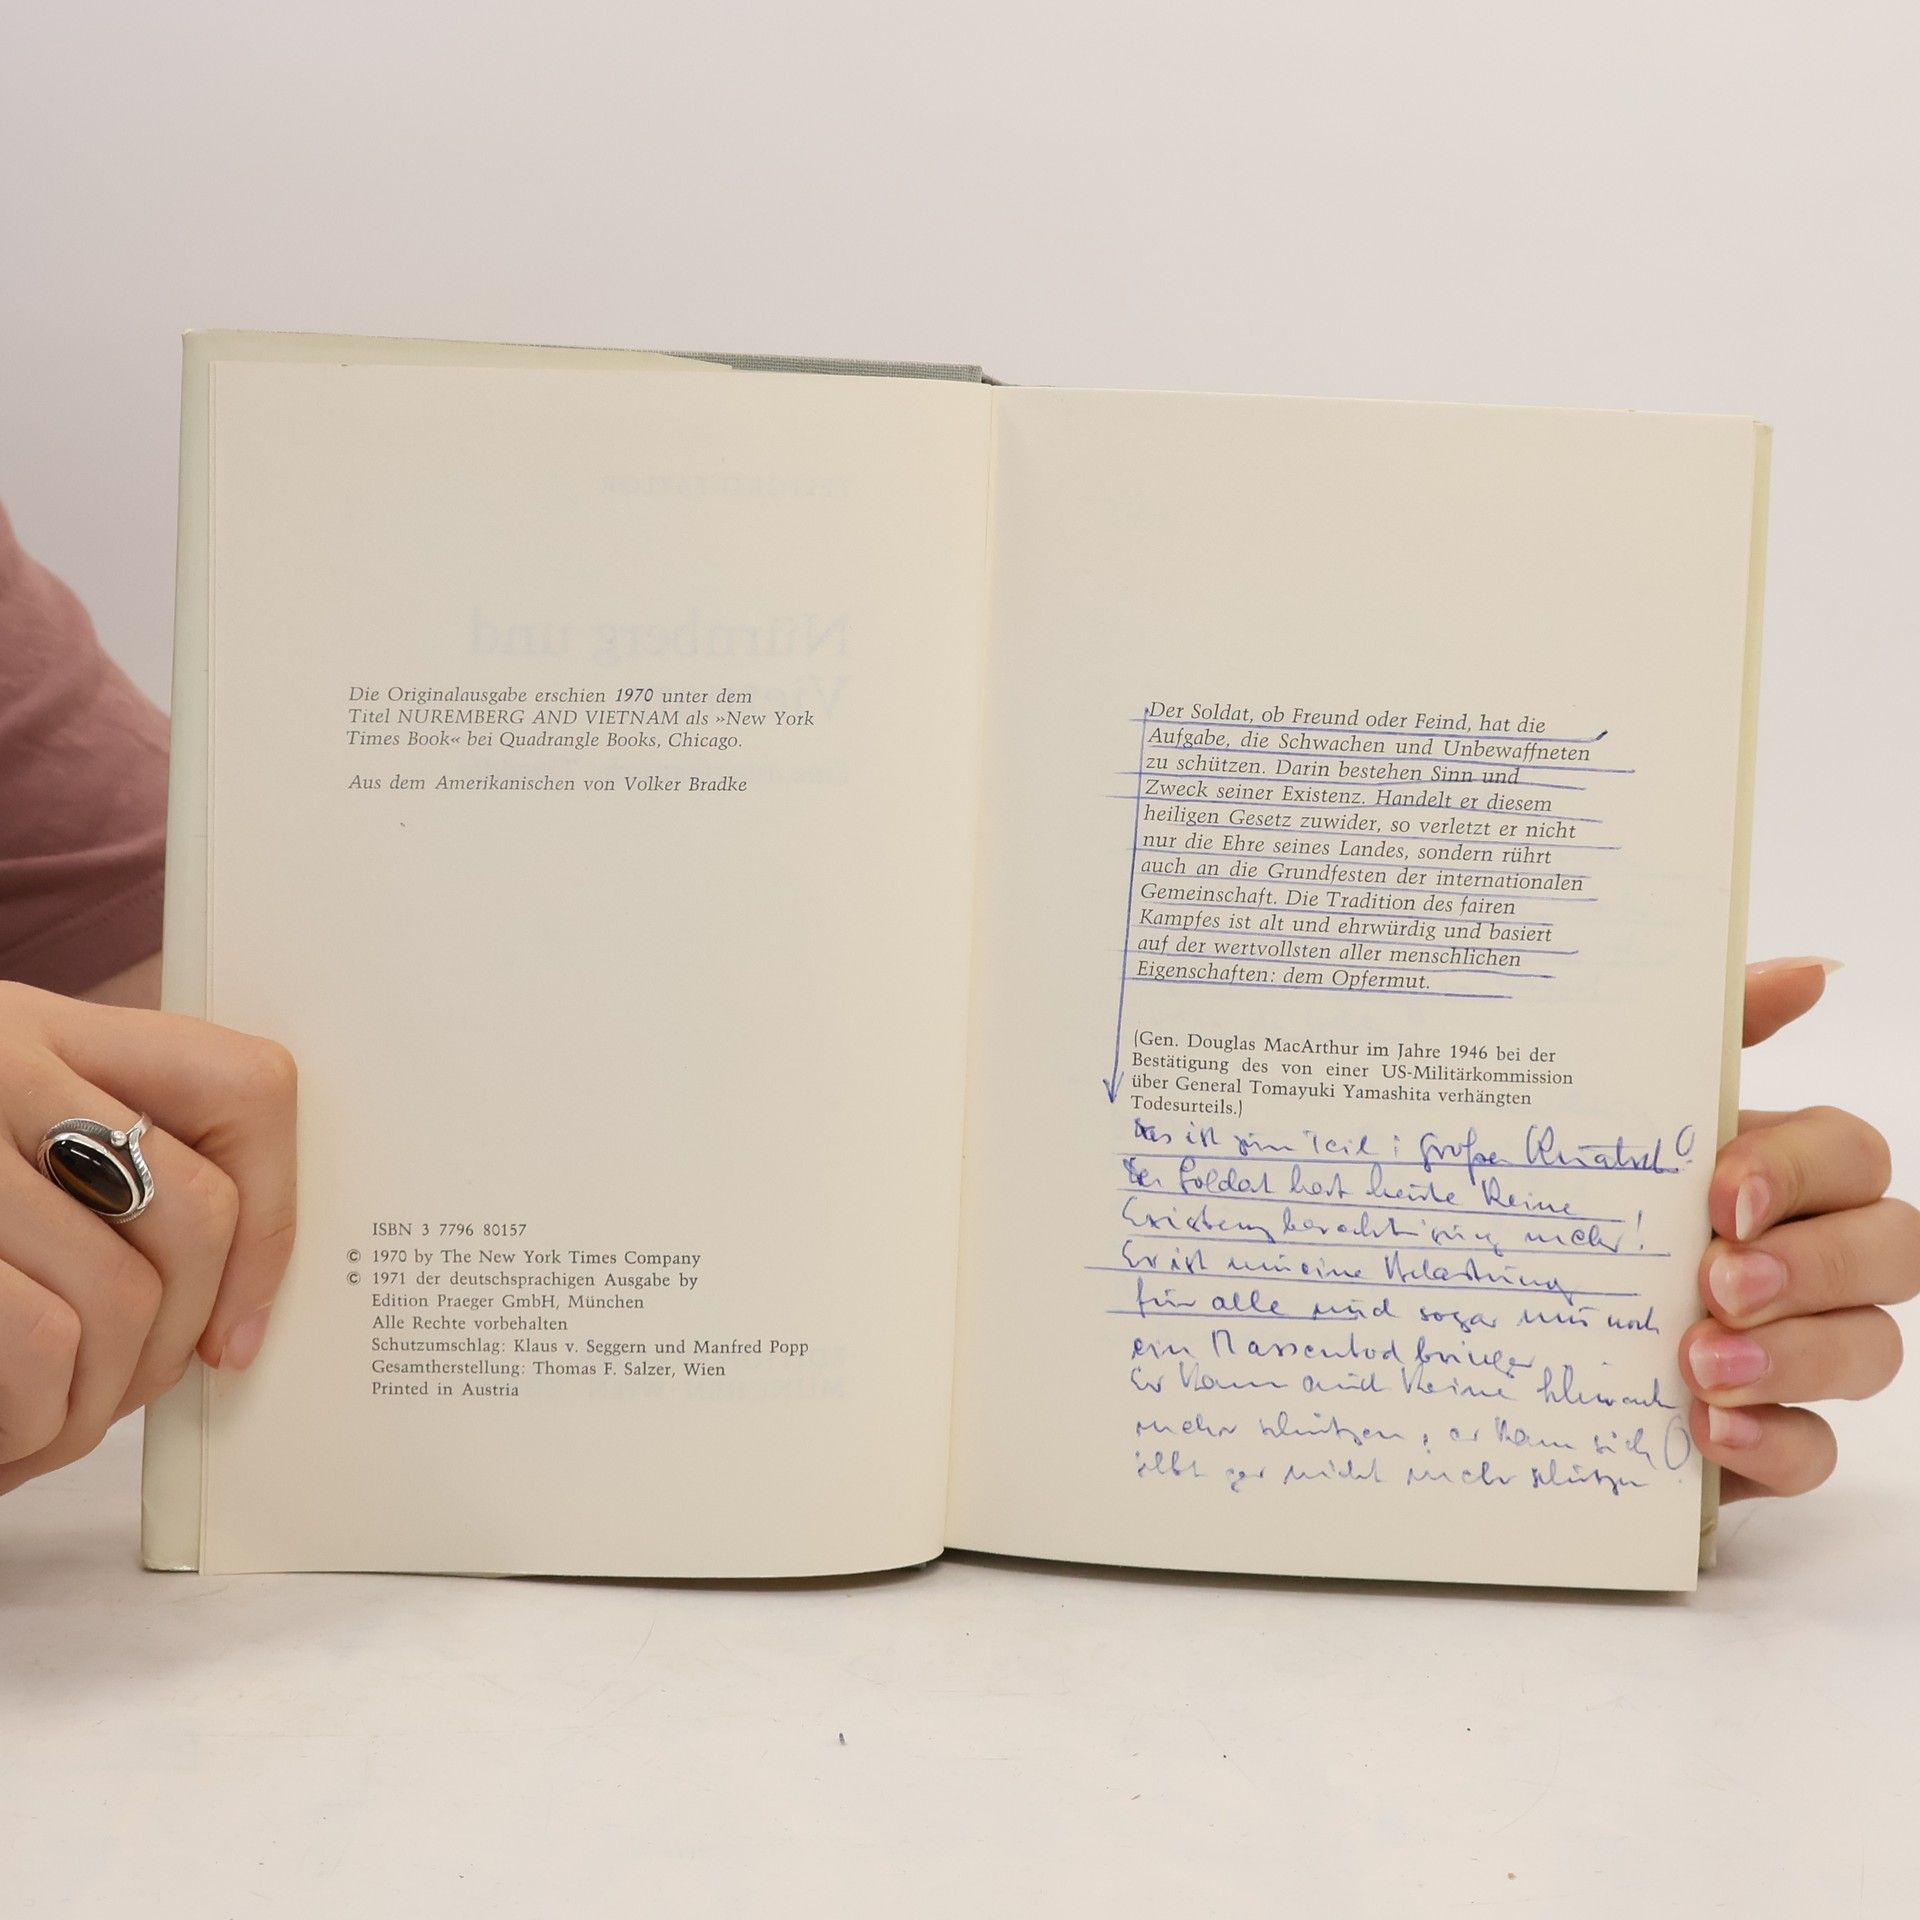 Die Originalausgabe erschien 1970 unter dem
Titel NUREMBERG AND VIETNAM als »New York
Times Book« bei Quadrangle Books, Chicago.
Aus dem Amerikanischen von Volker Bradke
ISBN 3 7796 80157
© 1970 by The New York Times Company
© 1971 der deutschsprachigen Ausgabe by
Edition Praeger GmbH, München
Alle Rechte vorbehalten
Schutzumschlag: Klaus v. Seggern und Manfred Popp
Gesamtherstellung: Thomas F. Salzer, Wien
Printed in Austria
Der Soldat, ob Freund oder Feind, hat die
Aufgabe, die Schwachen und Unbewaffneten
zu schützen. Darin bestehen Sinn und
Zweck seiner Existenz. Handelt er diesem
heiligen Gesetz zuwider, so verletzt er nicht
nur die Ehre seines Landes, sondern rührt
auch an die Grundfesten der internationalen
Gemeinschaft. Die Tradition des fairen
Kampfes ist alt und ehrwürdig und basiert
auf der wertvollsten aller menschlichen
Eigenschaften: dem Opfermut.
(Gen. Douglas MacArthur im Jahre 1946 bei der
Bestätigung des von einer US-Militärkommission
über General Tomayuki Yamashita verhängten
Todesurteils.)
Das ist zum Teil : großer
Der Soldat hat heute keine
Existenzberechtigung mehr!
Er ist nur eine Belastung
für alle und sogar nur noch
ein Massentodbringer
Er kann auch keine Schwachen
mehr schützen, er kann sich
selbst gar nicht mehr schützen